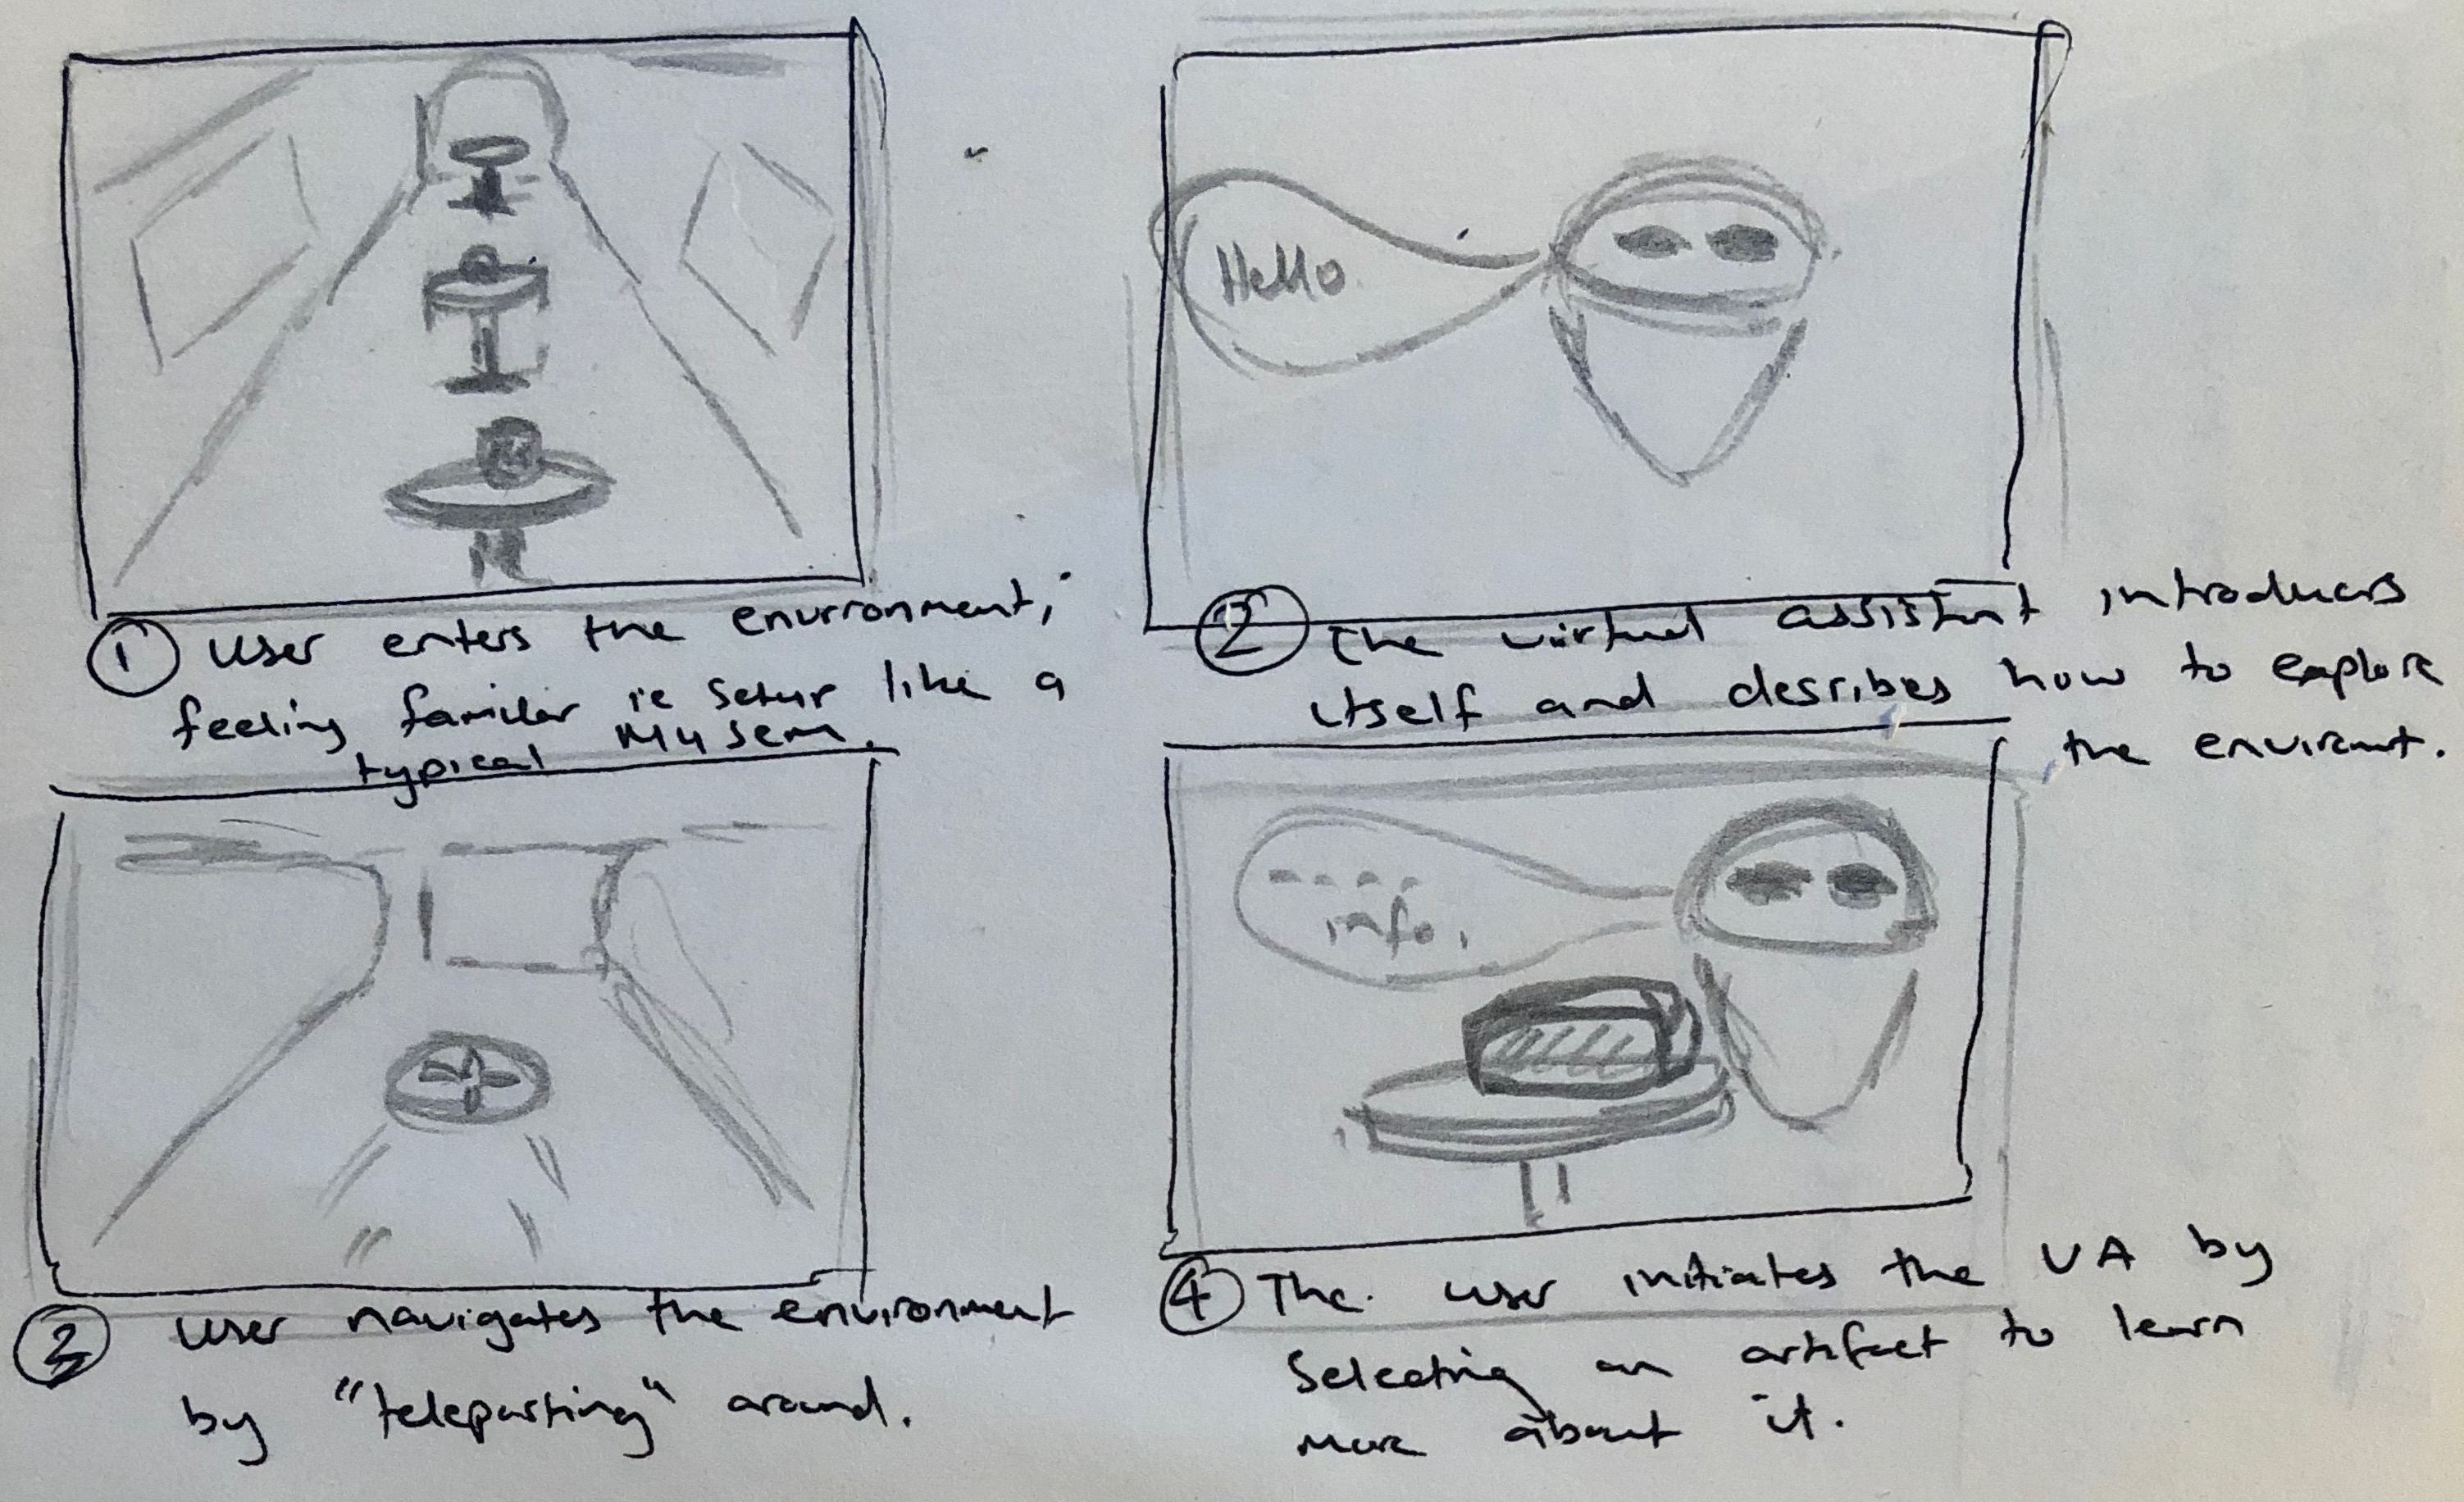 ① User enters the environment,
feeling familiar ie setup like a
typical Musem.
Hello
② The virtual assistant introduces
itself and desribes how to explore
the envirnmt.
③ User navigates the environment
by "teleporting" around.
---- info.
④ The user initiates the VA by
Selecting an artifact to learn
more about it.